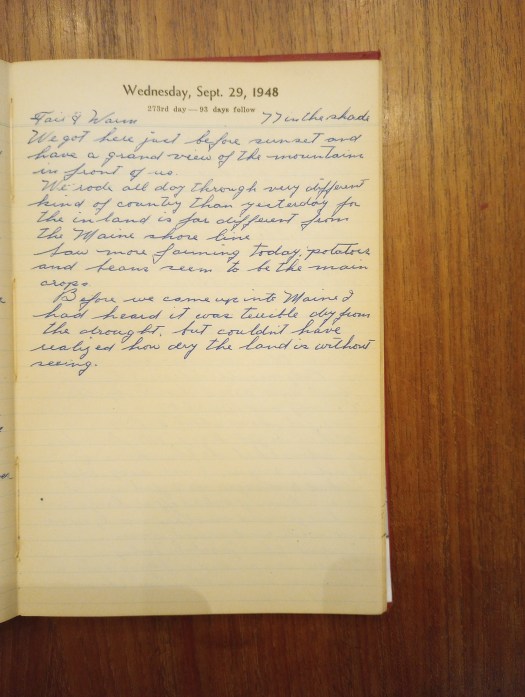 Wednesday, Sept. 29, 1948
273rd day — 93 days follow
Fair & Warm 77 in the shade
We got here just before sunset and
have a grand view of the mountain
in front of us.
We rode all day through very different
kind of country than yesterday for
the inland is far different from
the Maine shore line
Saw more farming today, potatoes
and beans seem to be the main
crops
Before we came up into Maine I
had heard it was terrible dry from
the drought, but couldn't have
realized how dry the land is without
seeing.